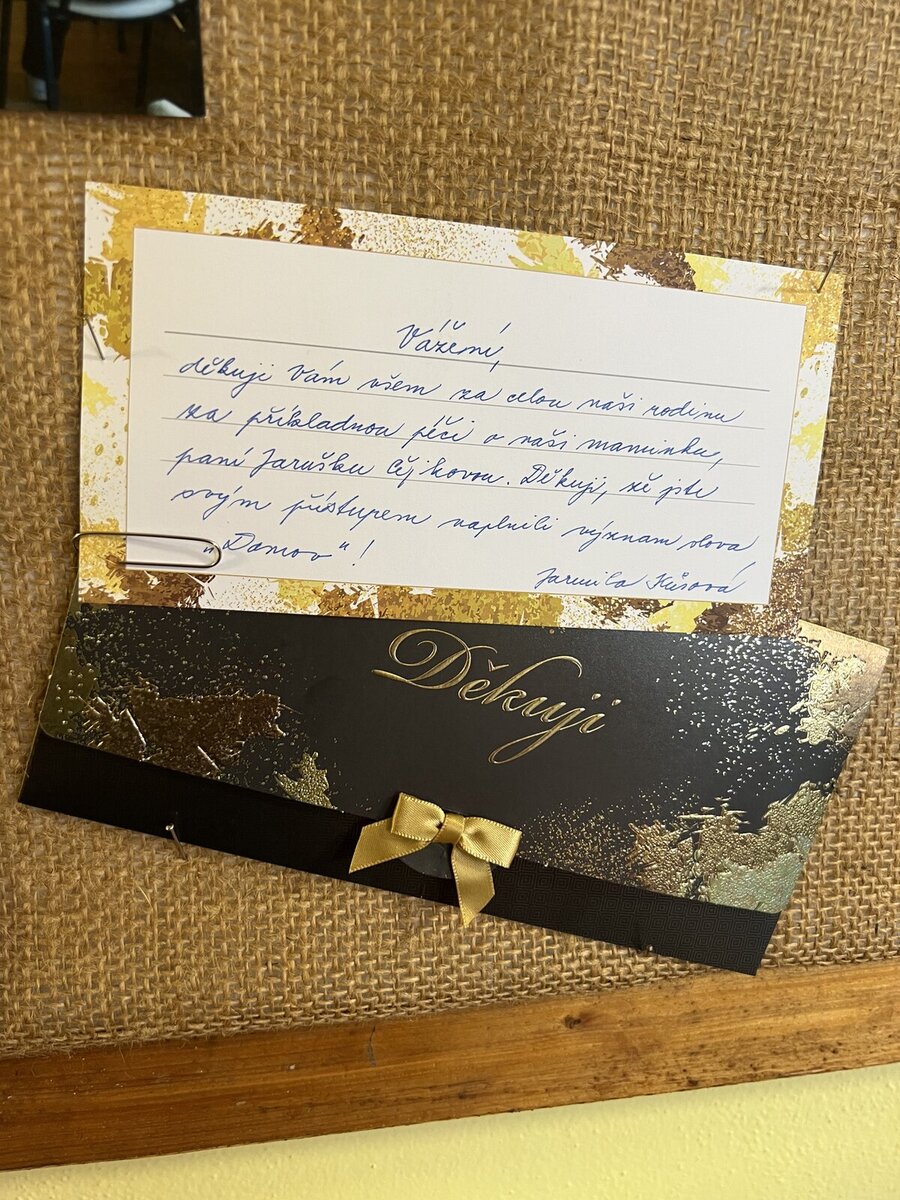 Vážení,
děkuji Vám všem za celou naši rodinu
za příkladnou péči o naši maminku,
paní Jarušku Čejkovou. Děkuji, že jste
svým přístupem naplnili význam slova
„Domov“!
Jarmila Kůsová
Děkuji